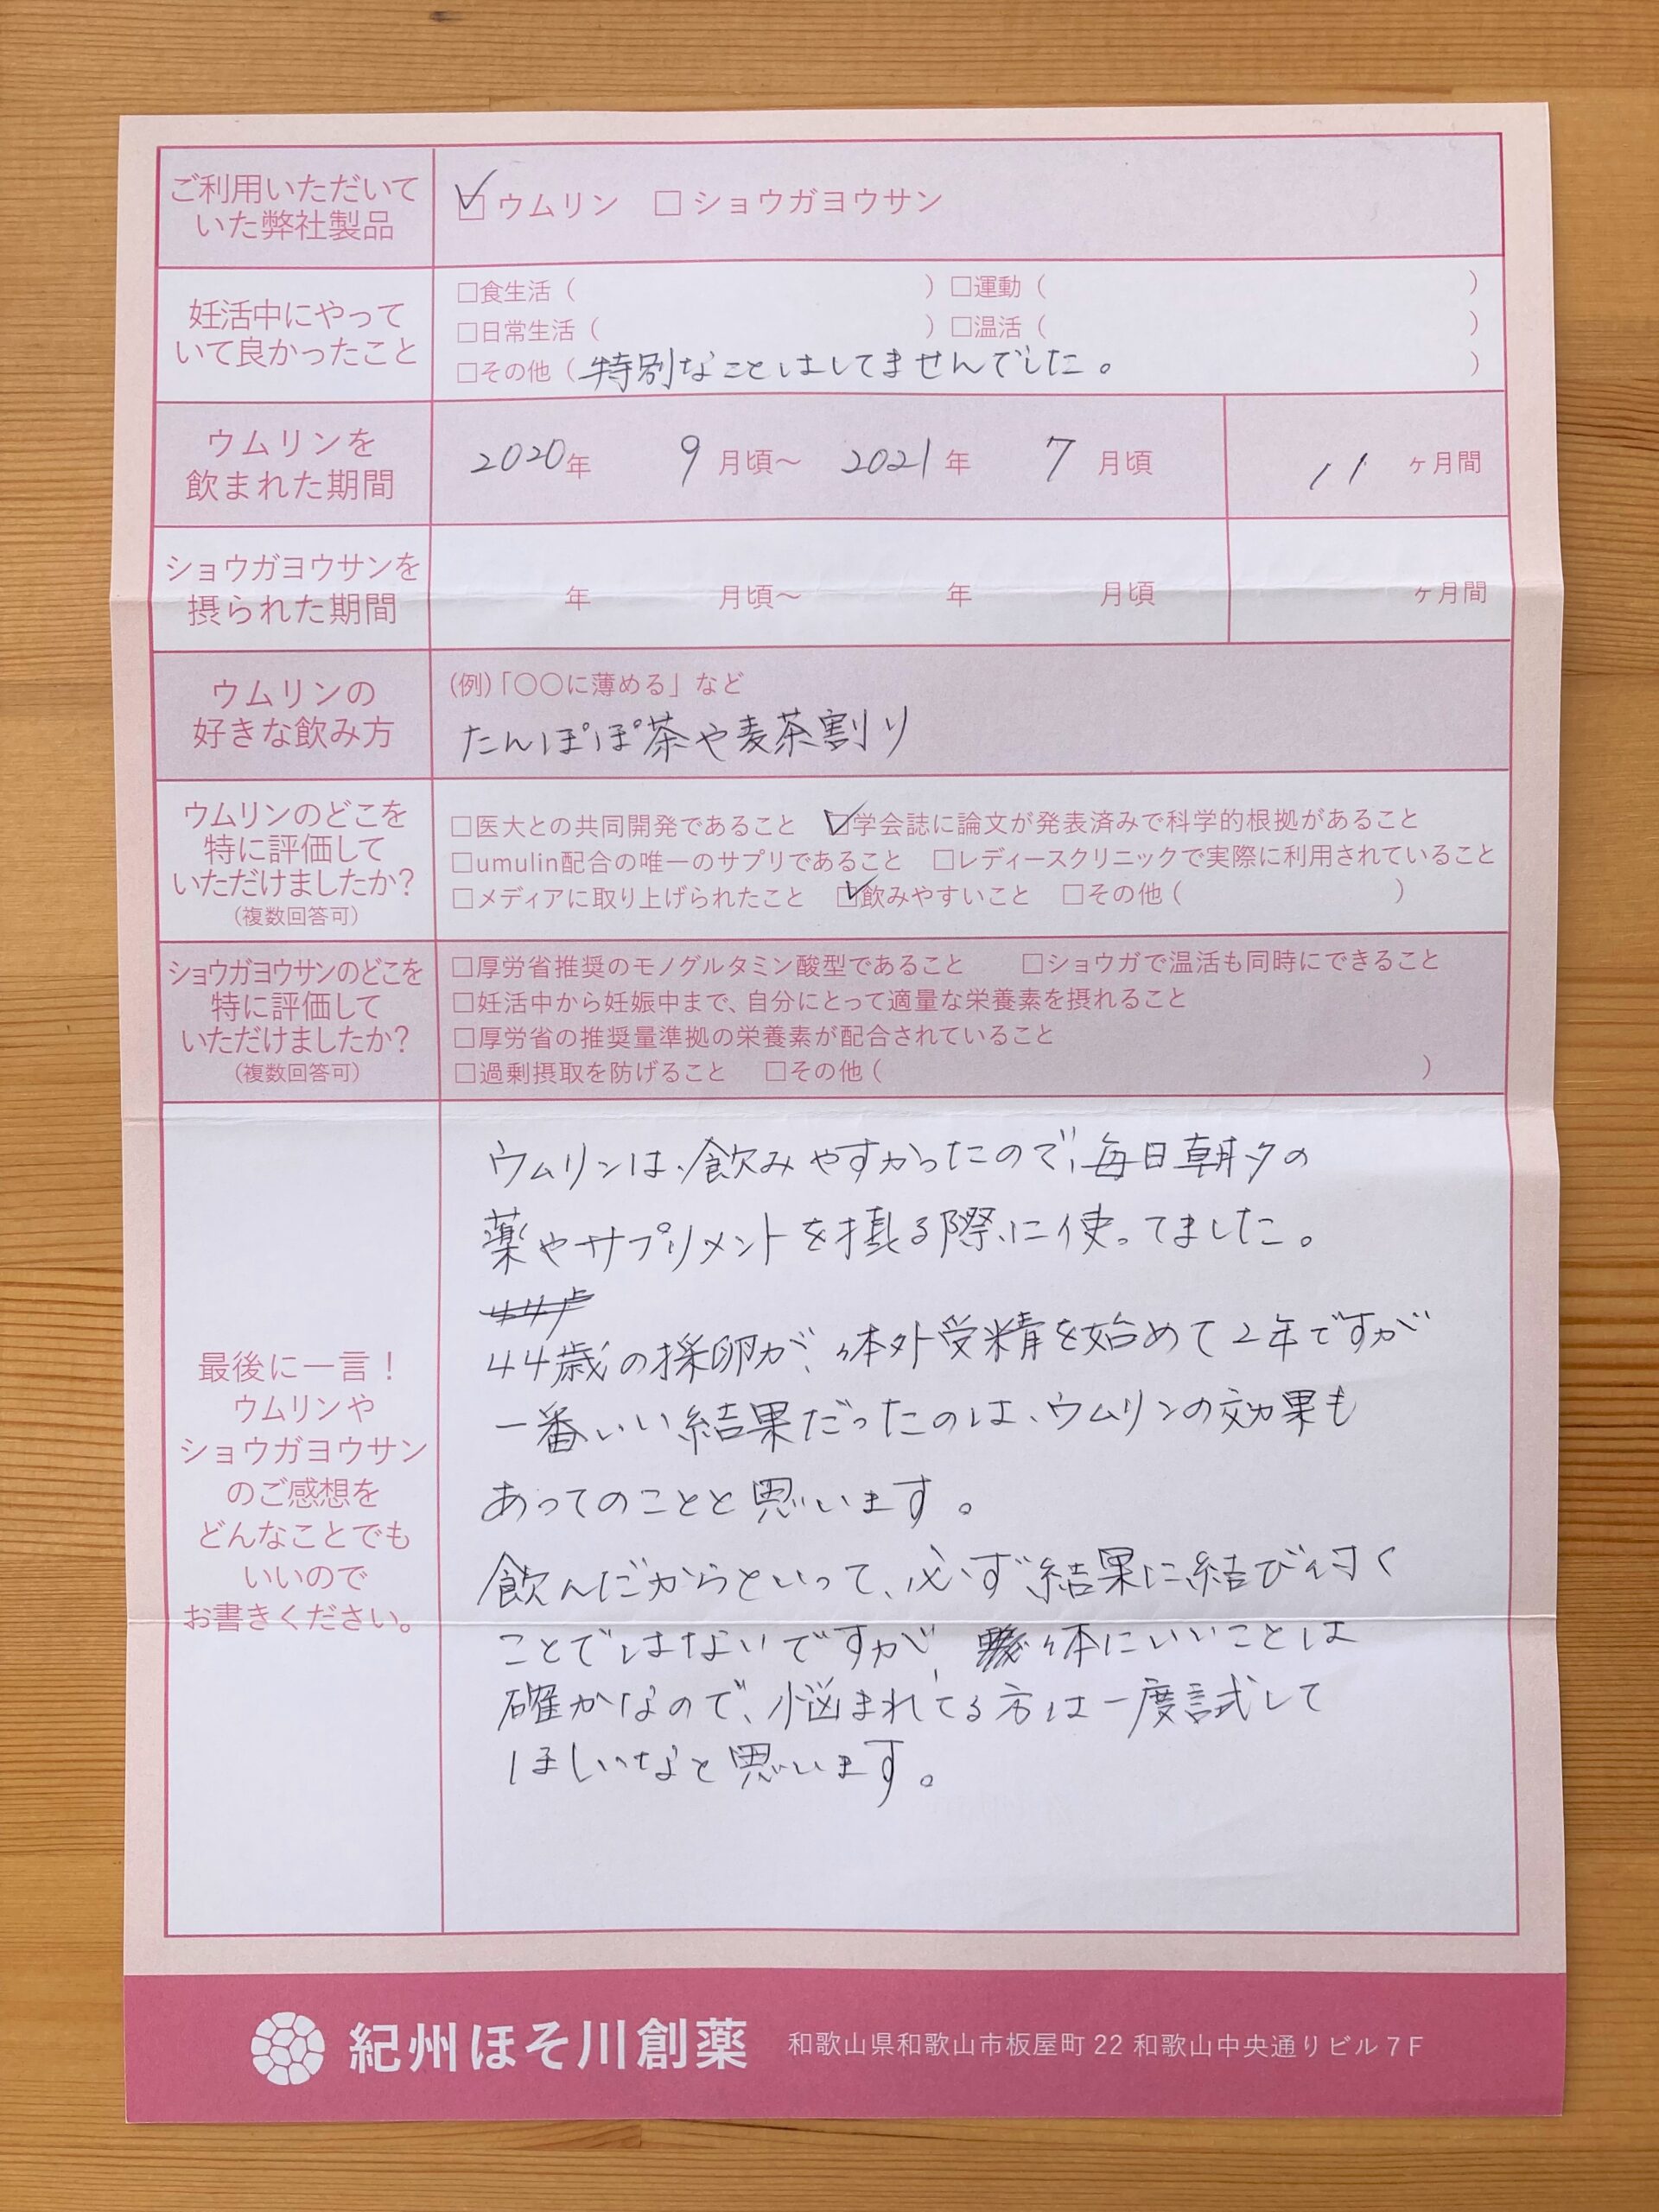 ご利用いただいて
いた弊社製品
☑ウムリン □ショウガヨウサン
妊活中にやって
いて良かったこと
□食生活（ ）□運動（ ）
□日常生活（ ）□温活（ ）
□その他（特別なことはしてませんでした。 ）
ウムリンを
飲まれた期間
2020年 9月頃～ 2021年 7月頃 11ヶ月間
ショウガヨウサンを
摂られた期間
年 月頃～ 年 月頃 ヶ月間
ウムリンの
好きな飲み方
(例)「〇〇に薄める」など
たんぽぽ茶や麦茶割り
ウムリンのどこを
特に評価して
いただけましたか?
(複数回答可)
□医大との共同開発であること ☑学会誌に論文が発表済みで科学的根拠があること
□umulin配合の唯一のサプリであること □レディースクリニックで実際に利用されていること
□メディアに取り上げられたこと ☑飲みやすいこと □その他（ ）
ショウガヨウサンのどこを
特に評価して
いただけましたか?
(複数回答可)
□厚労省推奨のモノグルタミン酸型であること □ショウガで温活も同時にできること
□妊活中から妊娠中まで、自分にとって適量な栄養素を摂れること
□厚労省の推奨量準拠の栄養素が配合されていること
□過剰摂取を防げること □その他（ ）
最後に一言！
ウムリンや
ショウガヨウサン
のご感想を
どんなことでも
いいので
お書きください。
ウムリンは、飲みやすかったので、毎日朝夕の
薬やサプリメントを摂る際に使ってました。
44歳の採卵が、体外受精を始めて2年ですが
一番いい結果だったのは、ウムリンの効果も
あってのことと思います。
飲んだからといって、必ず結果に結び付く
ことではないですが、体にいいことは
確かなので、悩まれてる方は一度試して
ほしいなと思います。
紀州ほそ川創薬 和歌山県和歌山市板屋町 22 和歌山中央通りビル 7 F